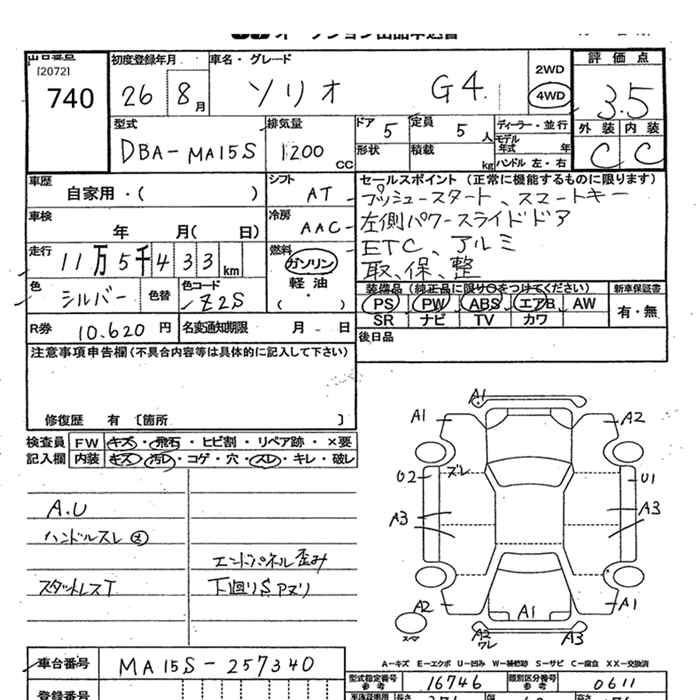 オークション出品申込書
出品番号
[2072]
740
初度登録年月
26 8月
車名・グレード
ソリオ G4
2WD
4WD
評価点
3.5
外装 内装
C C
型式
DBA-MA15S
排気量
1200 CC
ドア 5
定員 5人
形状
積載 kg
ディーラー・並行
モデル年式 年
ハンドル 左・右
車歴
自家用・( )
シフト
AT
セールスポイント (正常に機能するものに限ります)
プッシュースタート、スマートキー
左側パワースライドドア
ETC、アルミ
取、保、整
車検
年 月( 日)
冷房
AAC
走行
11万5千433km
燃料
ガソリン
軽油
( ・ )
色
シルバー
色替
色コード
Z2S
装備品 (純正品に限り○をつけてください)
PS PW ABS エアB AW
SR ナビ TV カワ
新車保証書
有・無
R券 10.620円
名変通知期限 月 日
後日品
注意事項申告欄(不具合内容等は具体的に記入して下さい)
修復歴 有 [箇所 ]
検査員記入欄
FW キズ・飛石・ヒビ割・リペア跡・×要
内装 キズ・汚レ・コゲ・穴・スレ・キレ・破レ
A.U
ハンドルスレ
エンドパネル歪み
スタットレスT
下廻りSPヌリ
A1
A1
A2
ズレ
U2
U1
A3
A3
A2
A1
A1
A2
ワレ
A3
A-キズ E-エクボ U-凹み W-補修跡 S-サビ C-腐食 XX-交換済
車台番号
MA15S-257340
型式指定番号
参考
16746
類別区分番号
参考
0611
登録番号